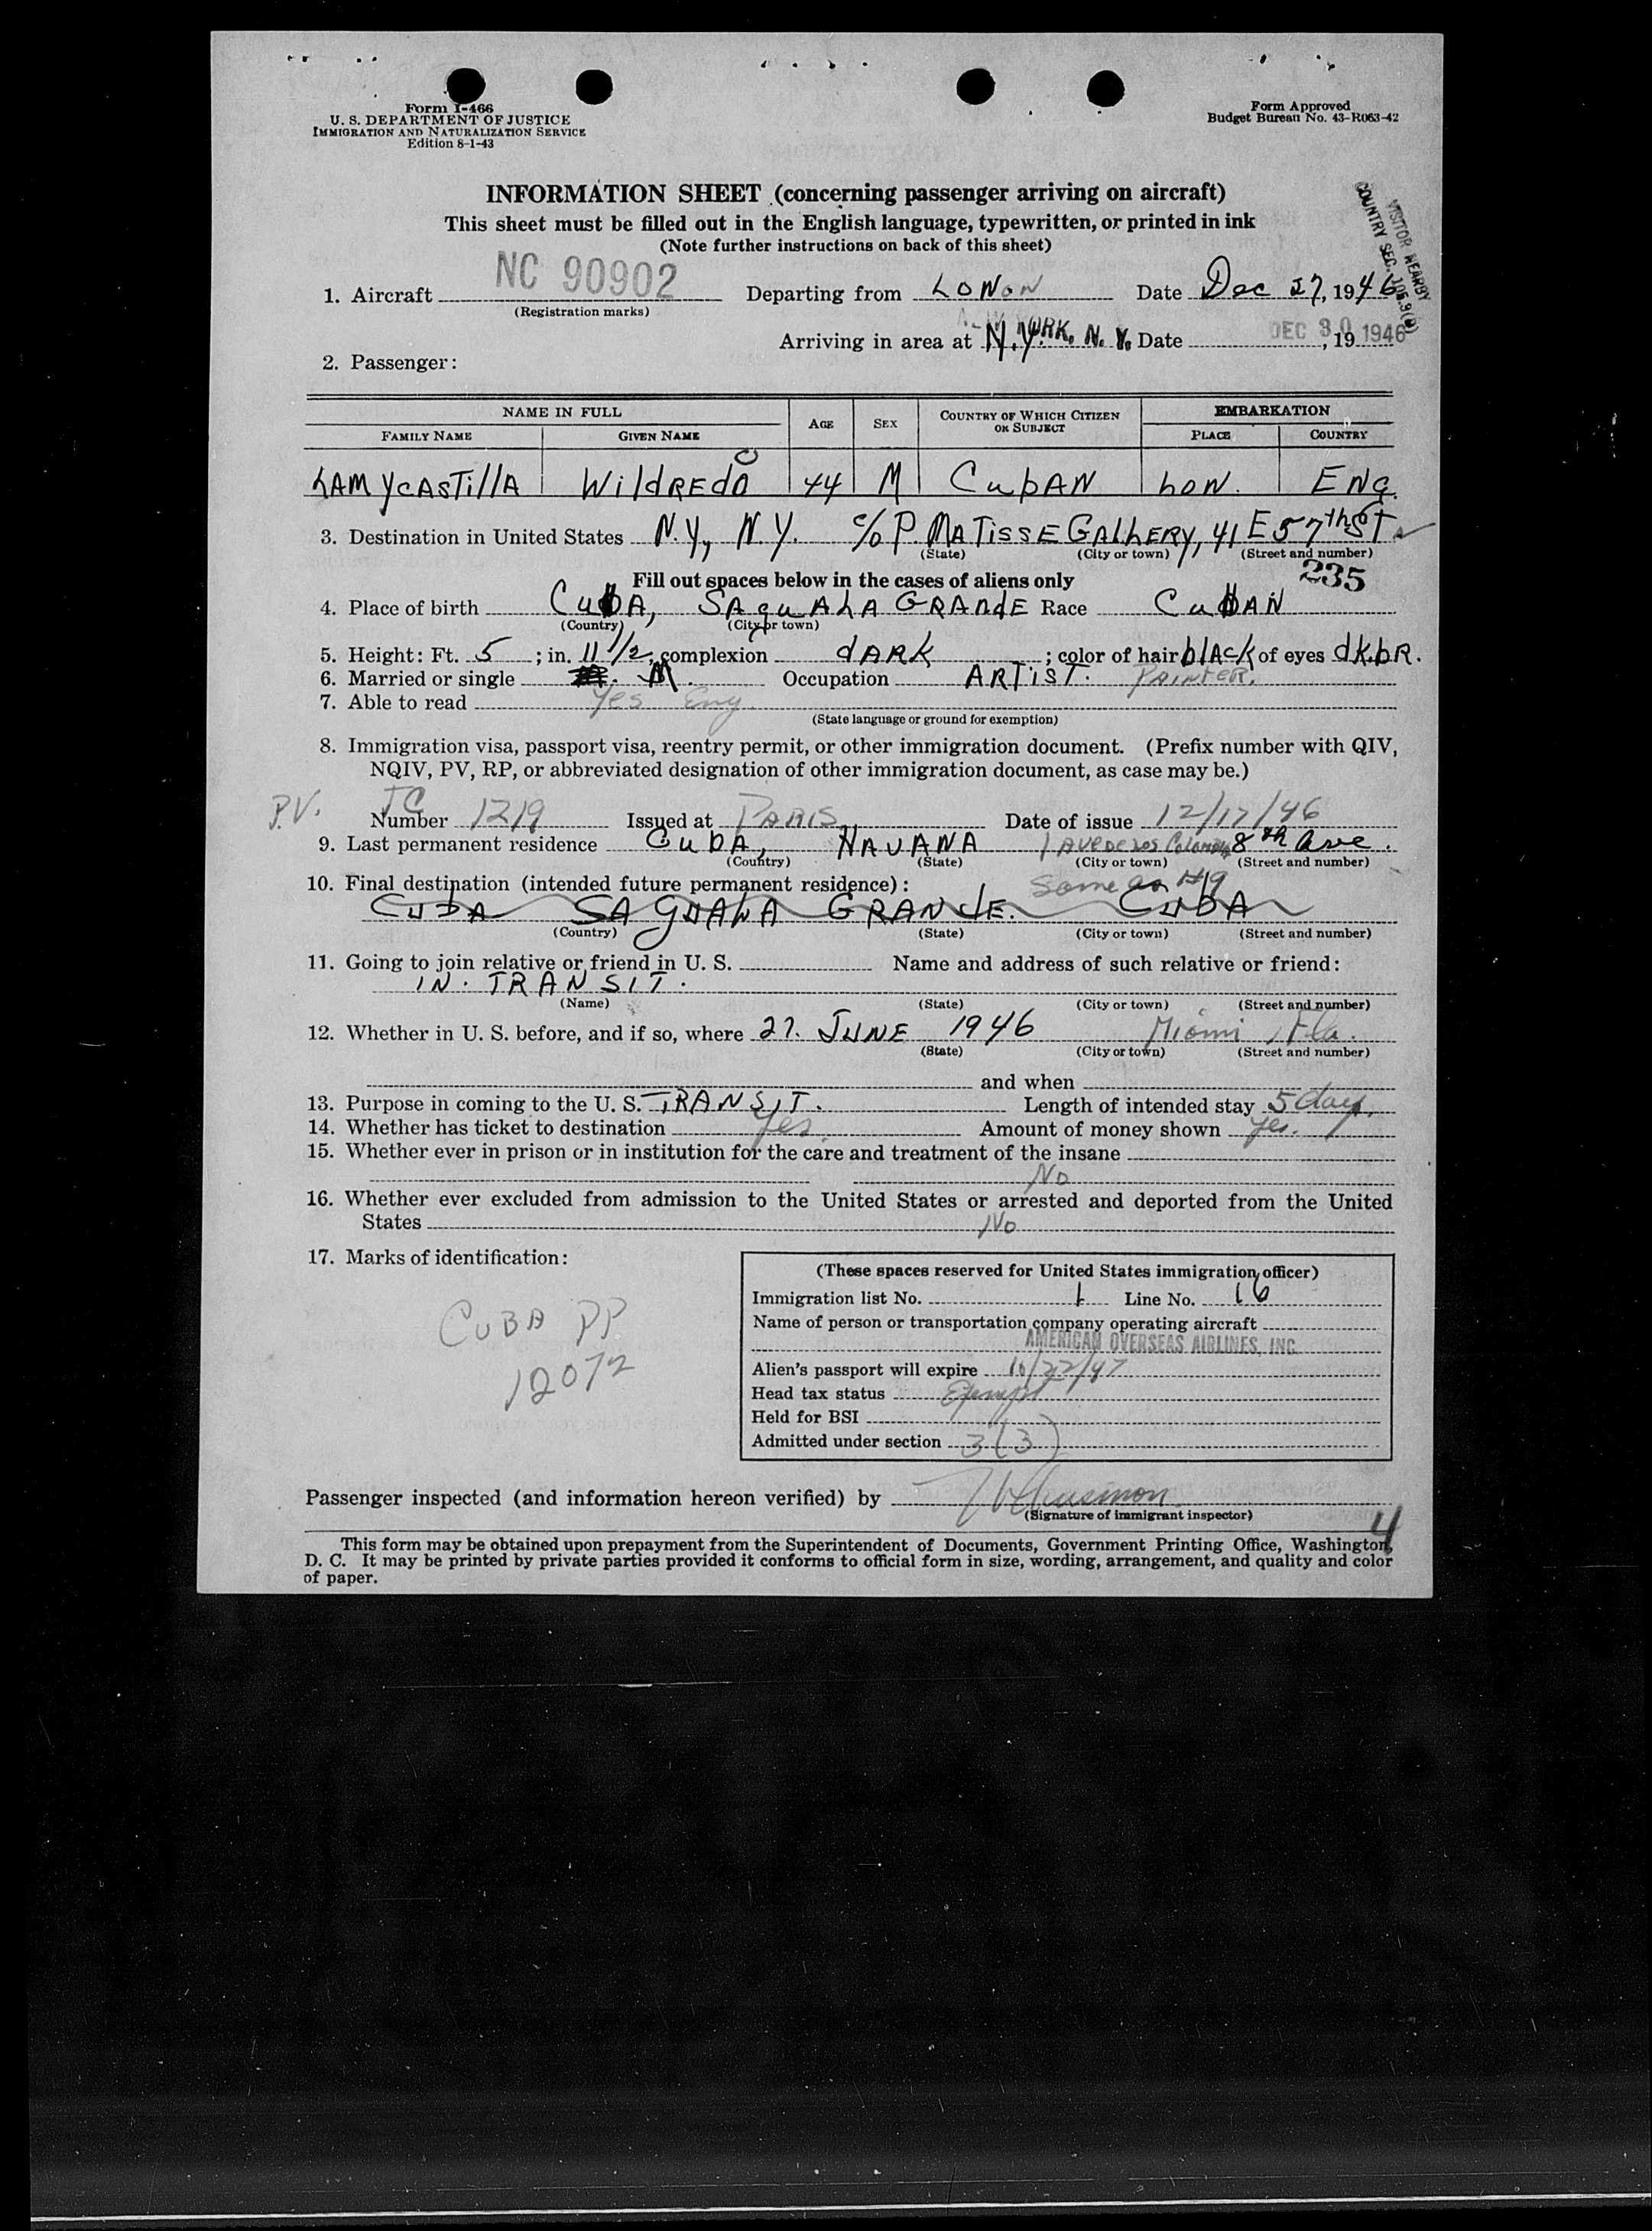 Form I-466
U. S. DEPARTMENT OF JUSTICE
IMMIGRATION AND NATURALIZATION SERVICE
Edition 8-1-43
Form Approved
Budget Bureau No. 43-R063-42
INFORMATION SHEET (concerning passenger arriving on aircraft)
This sheet must be filled out in the English language, typewritten, or printed in ink
(Note further instructions on back of this sheet)
VISITOR NEARBY
COUNTRY SEC.
1. Aircraft NC 90902 Departing from LONON Date Dec 27, 1946
(Registration marks)
Arriving in area at N.Y. YORK, N. Y. Date DEC 30, 19 1946
2. Passenger:
NAME IN FULL AGE SEX COUNTRY OF WHICH CITIZEN OR SUBJECT EMBARKATION
FAMILY NAME GIVEN NAME PLACE COUNTRY
LAM YCASTillA WildREdO 44 M CubAN LON. ENG.
3. Destination in United States N.Y, N.Y. c/o P. MATISSE GALLERY, 41 E 57th ST.
(State) (City or town) (Street and number)
235
Fill out spaces below in the cases of aliens only
4. Place of birth CUBA, SAguALA GRANdE Race CUBAN
(Country) (City or town)
5. Height: Ft. 5; in. 11 1/2, complexion dARK; color of hair blACK of eyes dK.bR.
6. Married or single M. Occupation ARTiST. PAINTER.
7. Able to read Yes Eng.
(State language or ground for exemption)
8. Immigration visa, passport visa, reentry permit, or other immigration document. (Prefix number with QIV,
NQIV, PV, RP, or abbreviated designation of other immigration document, as case may be.)
P.V. TC
Number 1219 Issued at PARIS Date of issue 12/17/46
9. Last permanent residence CubA, HAVANA 8th Ave.
(Country) (State) (City or town) (Street and number)
10. Final destination (intended future permanent residence): Same as #9
CUBA SAGUALA GRANdE. CUBA
(Country) (State) (City or town) (Street and number)
11. Going to join relative or friend in U. S. Name and address of such relative or friend:
IN. TRANSIT.
(Name) (State) (City or town) (Street and number)
12. Whether in U. S. before, and if so, where 27. JUNE 1946 Miami, Fla.
(State) (City or town) (Street and number)
and when
13. Purpose in coming to the U. S. TRANSIT. Length of intended stay 5 days.
14. Whether has ticket to destination Yes. Amount of money shown yes.
15. Whether ever in prison or in institution for the care and treatment of the insane
No
16. Whether ever excluded from admission to the United States or arrested and deported from the United
States No
17. Marks of identification:
CUBA PP
12072
(These spaces reserved for United States immigration officer)
Immigration list No. 1 Line No. 16
Name of person or transportation company operating aircraft
AMERICAN OVERSEAS AIRLINES, INC.
Alien's passport will expire 10/22/47
Head tax status Exempt
Held for BSI
Admitted under section 3(3)
Passenger inspected (and information hereon verified) by
(Signature of immigrant inspector)
4
This form may be obtained upon prepayment from the Superintendent of Documents, Government Printing Office, Washington,
D. C. It may be printed by private parties provided it conforms to official form in size, wording, arrangement, and quality and color
of paper.